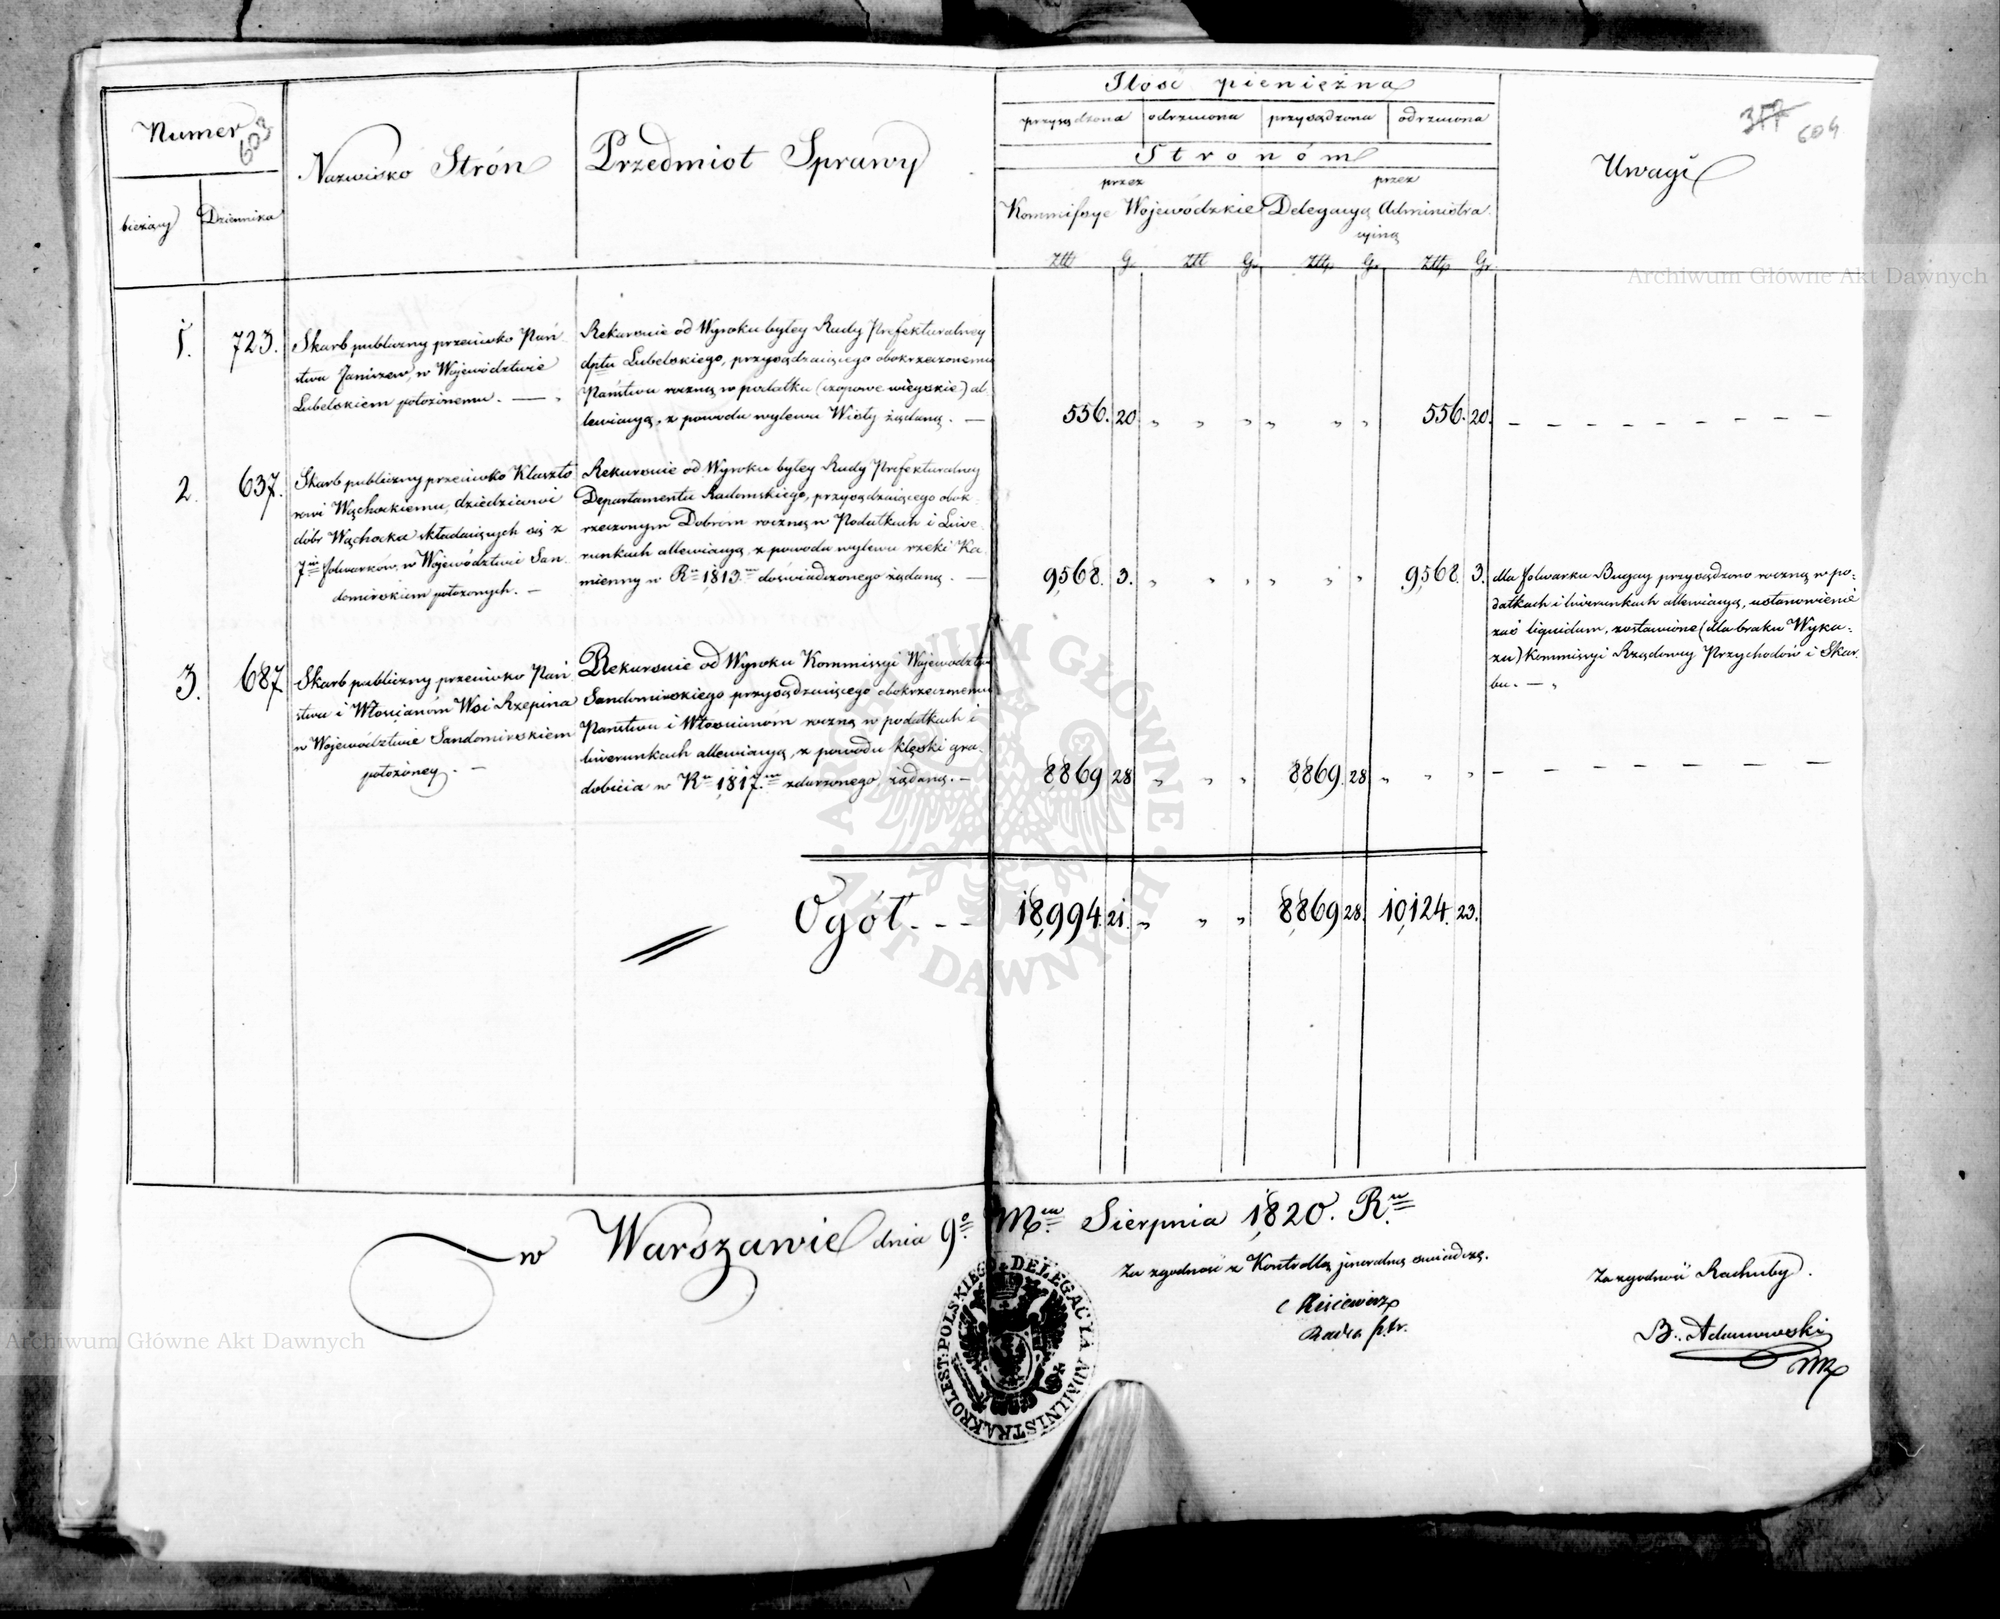 Ilość pieniężna
Numer
603
377 604
przysądzona odrzucona przysądzona odrzucona
Nazwisko Strón
Przedmiot Sprawy
Stronóm
Uwagi
przez
przez
bieżący
Dziennika
Kommissye Wojewódzkie
Delegacyą Administra
cyiną
Złt G. Złt Gr. Złtp Gr. Złtp Gr.
Archiwum Główne Akt Dawnych
1. 723.
Skarb publiczny przeciwko Pań
stwu Janiszew, w Województwie
Lubelskiem położonemu. —
Rekursuie od Wyroku byłey Rady Prefekturalney
dptu Lubelskiego, przysądzaiącego obokrzeczonemu
Państwu roczną w podatku (czopowe wieyskie) al
lewiacyą, z powodu wylewu Wisły żądaną. —
556. 20 „ „ „ „ „ „ 556. 20. — — — — — — — —
2. 637.
Skarb publiczny przeciwko Klaszto
rowi Wąchockiemu, dziedzicowi
dóbr Wąchocka składaiących się z
7miu folwarków, w Województwie San
domirskiem położonych. —
Rekursuie od Wyroku byłey Rady Prefekturalney
Departamentu Radomskiego, przysądzaiącego obok
rzeczonym Dobrom roczną w Podatkach i Liwe
runkach allewiacyą, z powodu wylewu rzeki Ka
mienny w Ru 1813m doświadczonego żądaną. —
9,568. 3. „ „ „ „ „ 9,568. 3.
dla folwarku Bugay przysądzono roczną w po-
datkach i liwerunkach allewiacyą, ustanowienie
zaś liquidum, zostawione (dla braku Wyka-
zu) Kommissyi Rządowey Przychodów i Skar
bu. —
3. 687
Skarb publiczny przeciwko Pań
stwu i Włościanom Wsi Rzepina
w Województwie Sandomirskiem
położoney. —
Rekursuie od Wyroku Kommissyi Województwa
Sandomirskiego przysądzaiącego obokrzeczonemu
Państwu i Włościanóm roczną w podatkach i
liwerunkach allewiacyą, z powodu klęski gra-
dobicia w Ru 1817.m zdarzonego, żądaną. —
8,869 28 „ „ „ 8,869. 28 „ „ „ — — — — — — —
Ogół - - - 18,994. 21. „ „ „ 8,869 28. 10,124. 23.
ARCHIWUM GŁÓWNE · AKT DAWNYCH ·
w Warszawie dnia 9o Mca Sierpnia 1,820. Ru
Za zgodność z Kontrollą jeneralną świadczę.
Za zgodność Rachuby.
B. Adamowski
Archiwum Główne Akt Dawnych
KROLEST: POLSKIEGO DELEGACYA ADMINISTRA